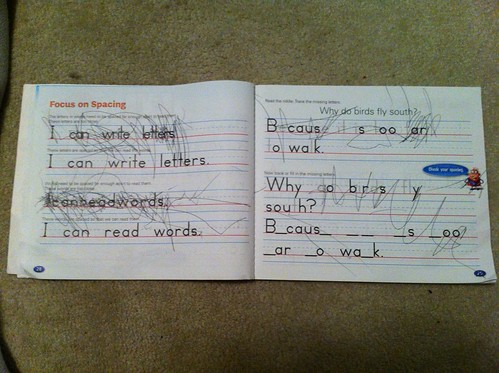 Focus on Spacing
I can write letters
I can write letters.
Icanreadwords.
I can read words.
28
Read the riddle. Trace the missing letters.
Why do birds fly south?
B caus s oo ar
o walk.
Check your spacing
Why o bir s ly
south?
B_caus_ _ _ _s _oo
_ar _o wa_k.